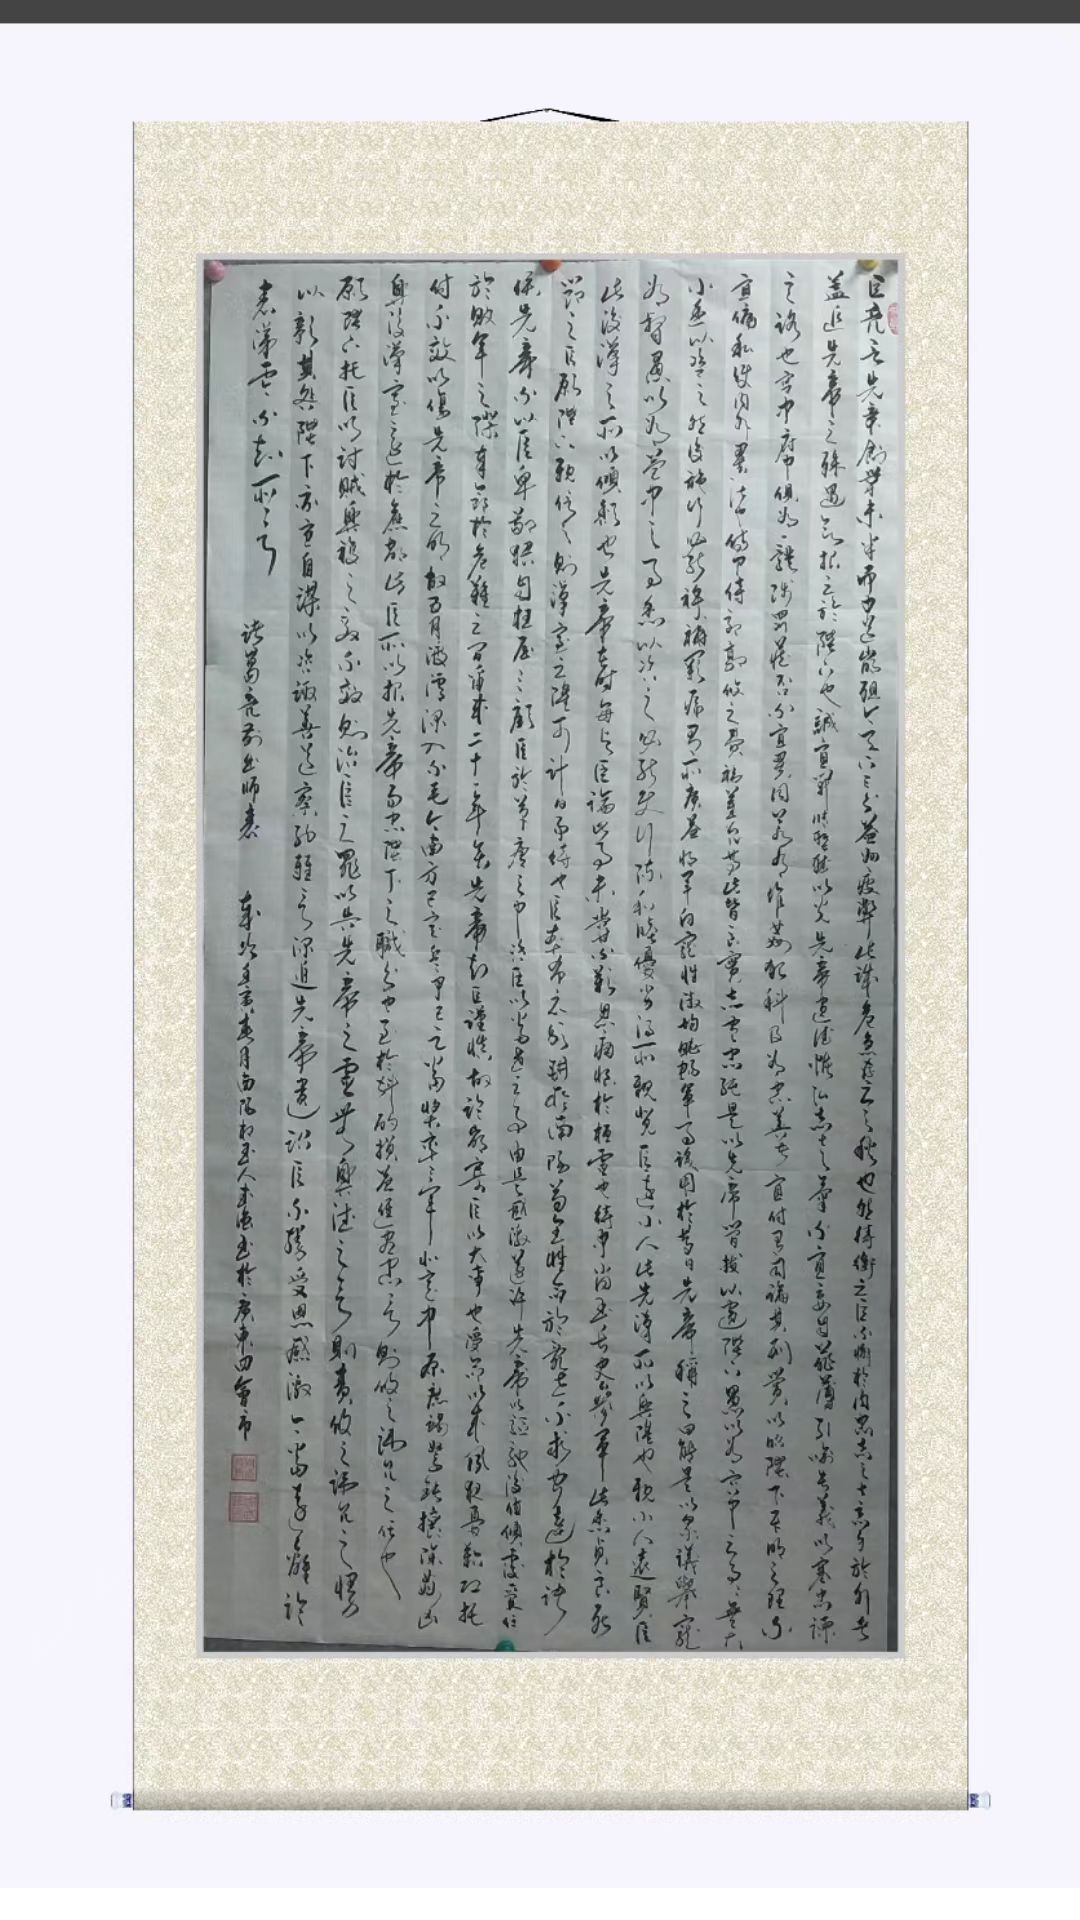 臣亮言先帝創業未半而中道崩殂今天下三分益州疲弊此誠危急存亡之秋也然侍衛之臣不懈於內忠志之士忘身於外者
蓋追先帝之殊遇欲報之於陛下也誠宜開張聖聽以光先帝遺德恢弘志士之氣不宜妄自菲薄引喻失義以塞忠諫
之路也宮中府中俱為一體陟罰臧否不宜異同若有作姦犯科及為忠善者宜付有司論其刑賞以昭陛下平明之理不
宜偏私使內外異法也侍中侍郎郭攸之費禕董允等此皆良實志慮忠純是以先帝簡拔以遺陛下愚以為宮中之事事無大
小悉以咨之然後施行必能裨補闕漏有所廣益將軍向寵性行淑均曉暢軍事試用於昔日先帝稱之曰能是以眾議舉寵
為督愚以為營中之事悉以咨之必能使行陣和睦優劣得所親賢臣遠小人此先漢所以興隆也親小人遠賢臣
此後漢之所以傾頹也先帝在時每與臣論此事未嘗不歎息痛恨於桓靈也侍中尚書長史參軍此悉貞良死
節之臣願陛下親信之則漢室之隆可計日而待也臣本布衣躬耕於南陽苟全性命於亂世不求聞達於諸
侯先帝不以臣卑鄙猥自枉屈三顧臣於草廬之中咨臣以當世之事由是感激遂許先帝以驅馳後值傾覆受任
於敗軍之際奉命於危難之間爾來二十一年矣先帝知臣謹慎故臨崩寄臣以大事也受命以來夙夜憂歎恐托
付不效以傷先帝之明故五月渡瀘深入不毛今南方已定兵甲已足當獎率三軍北定中原庶竭駑鈍攘除奸凶
興復漢室還於舊都此臣所以報先帝而忠陛下之職分也至於斟酌損益進盡忠言則攸之禕允之任也
願陛下托臣以討賊興復之效不效則治臣之罪以告先帝之靈若無興德之言則責攸之禕允之慢
以彰其咎陛下亦宜自謀以咨諏善道察納雅言深追先帝遺詔臣不勝受恩感激今當遠離臨
表涕零不知所言
諸葛亮前出師表 歲次春月南陽書於廣東四會市